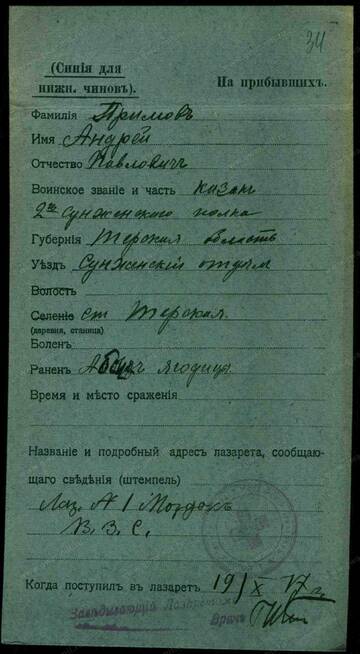 34
(Синія для
нижн. чиновъ).
На прибывшихъ.
Фамилія Примовъ
Имя Андрей
Отчество Павловичъ
Воинское званіе и часть казакъ
2го Сунженского полка
Губернія Терская область
Уѣздъ Сунженскій отдѣлъ
Волость
Селеніе ст Терская.
(деревня, станица)
Боленъ
Раненъ ягодица
Время и мѣсто сраженія
Названіе и подробный адресъ лазарета, сообщаю-
щаго свѣдѣнія (штемпель)
Лаз. № 1 Моздокъ
В. З. С.
Когда поступилъ въ лазаретъ 19/X
Завѣдывающій Лазаретомъ
Врачъ